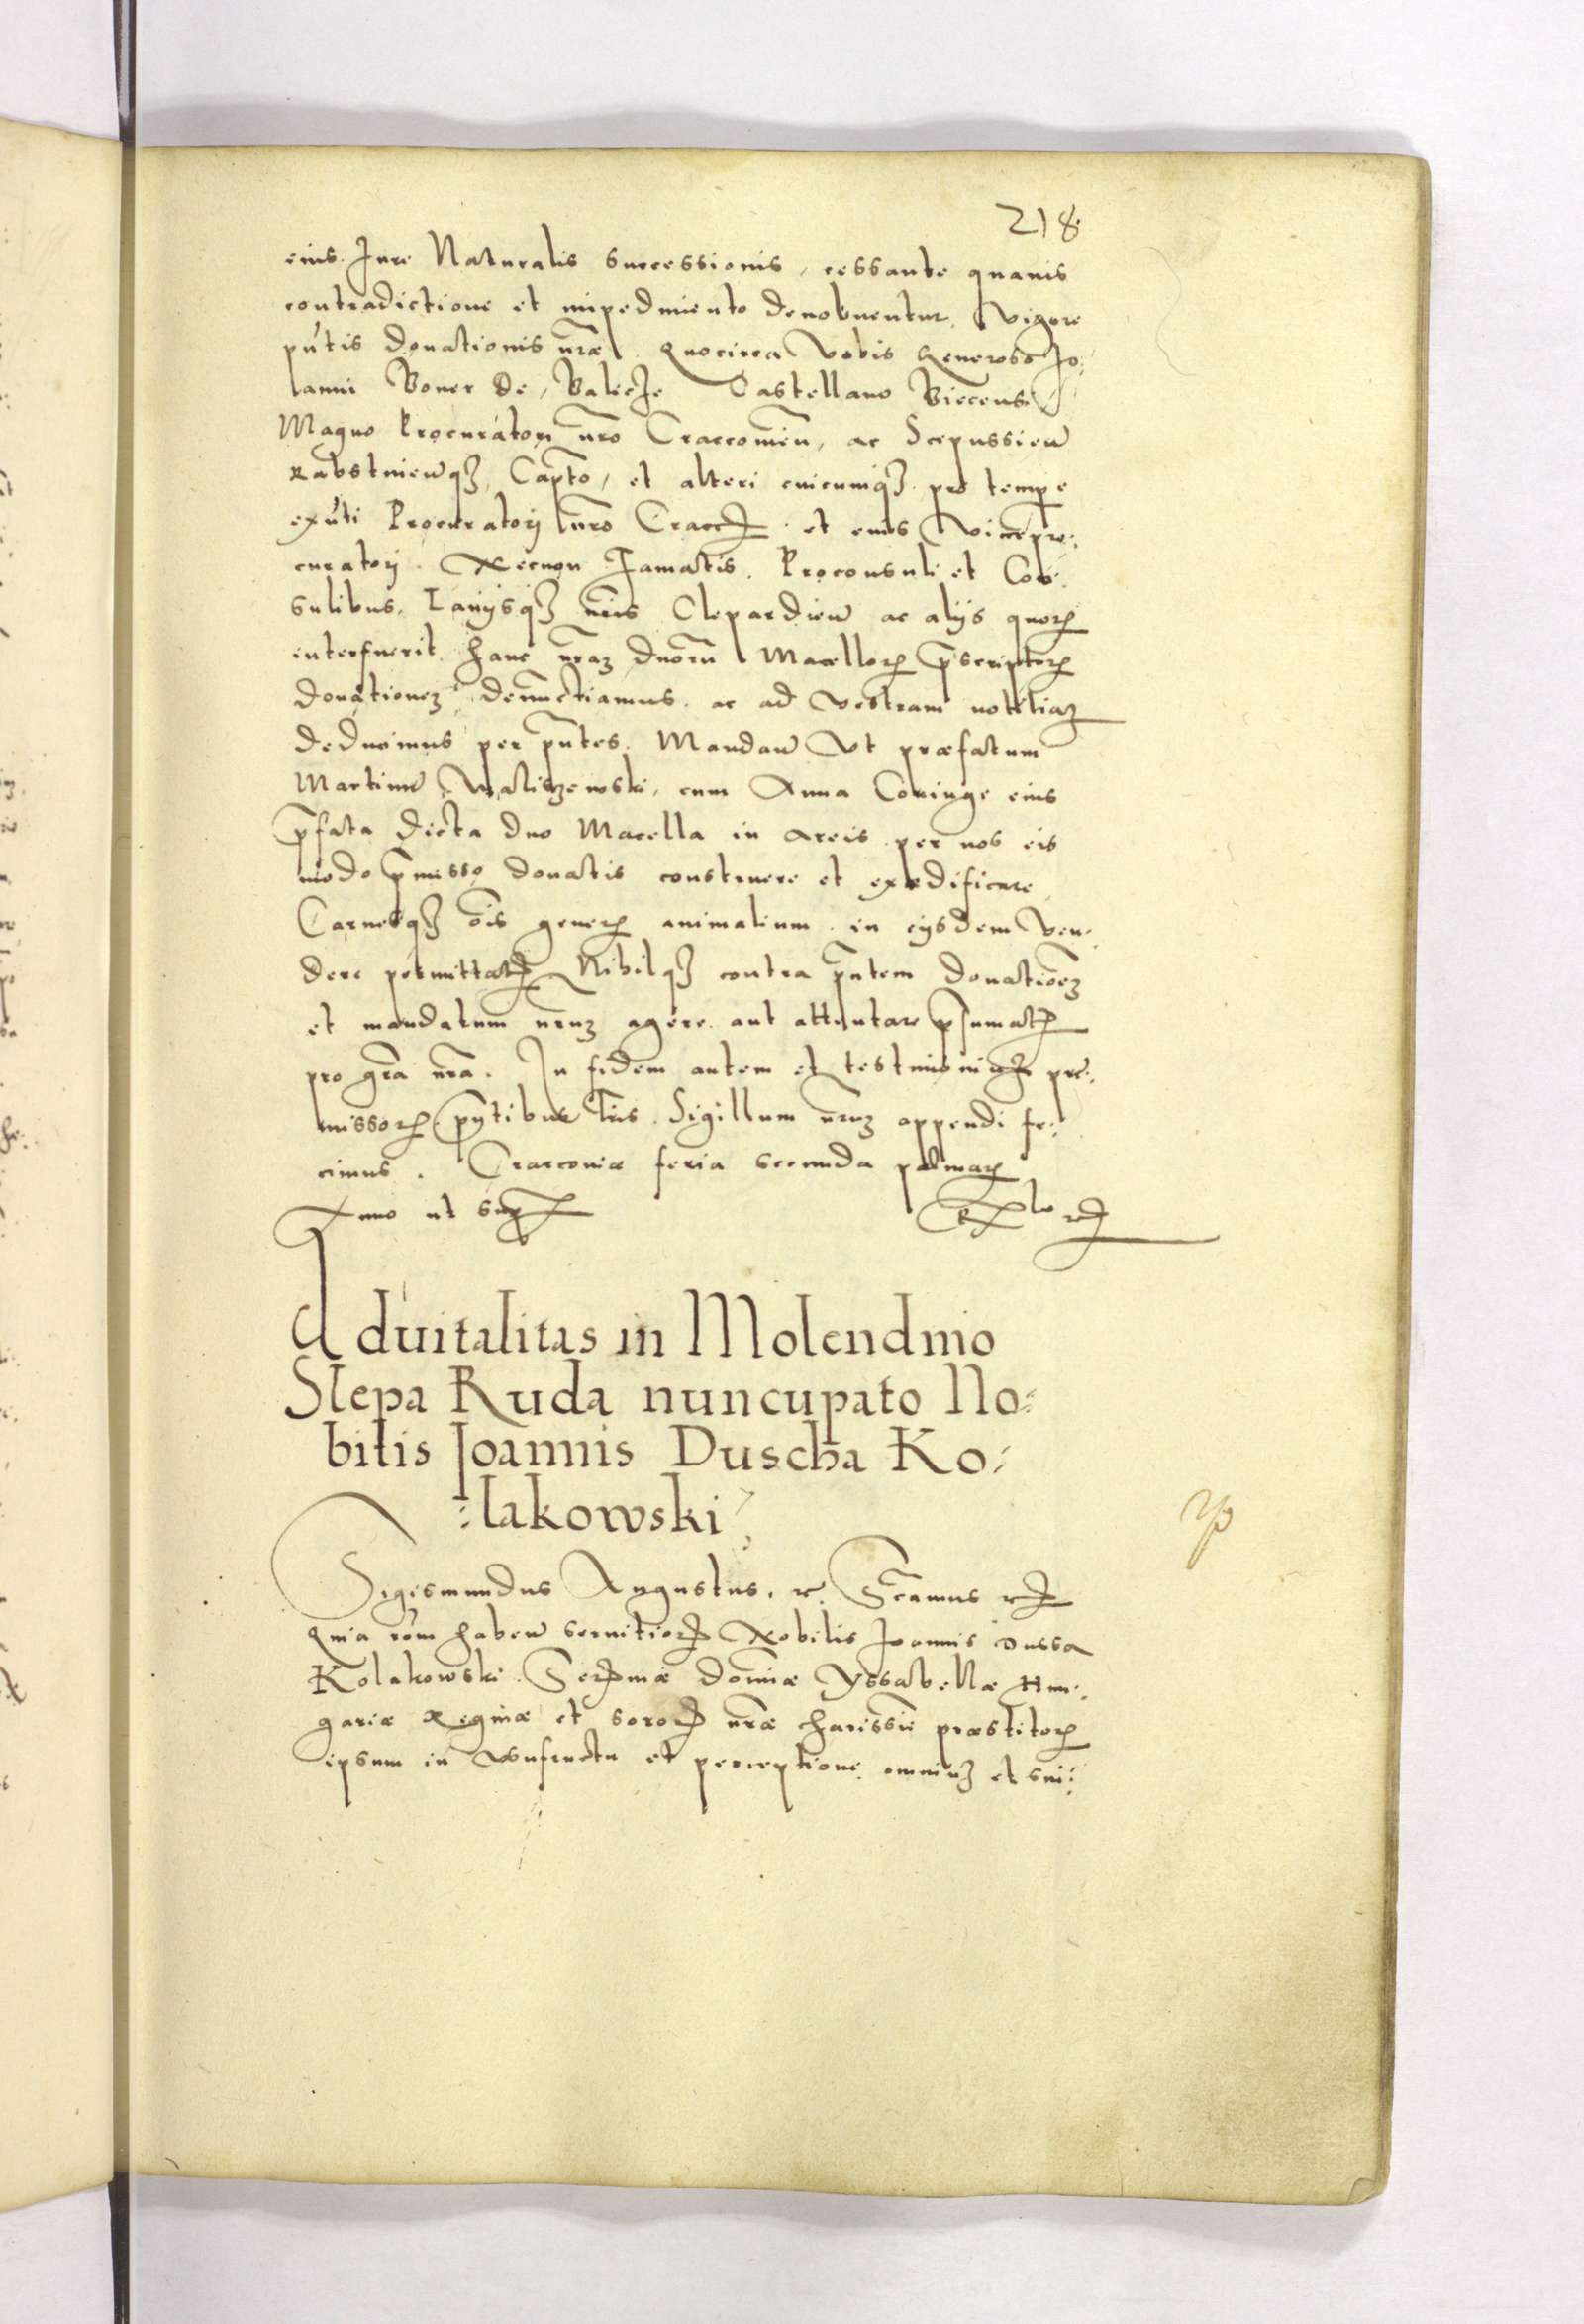 218
eius. Jure Naturalis successionis, cessante quauis
contradictione et impedimento deuoluentur, vigore
pntis donationis nræ. Quocirca Vobis Generoso Jo:
anni Boner de Balicze Castellano Biecensi
Magno Procuratori nro Cracouien, ac Scepussien
Rabstinenqz Capto, et alteri cuicumqz pro tempe
exnti Procuratori nro Cracc et eius Vicepro:
curatori. Necnon Famatis. Proconsuli et Con:
sulibus. Lanijsqz nris Clepardien ac alijs quorz
interfuerit. hanc nraz duorum Macellorz pscriptorz
donationez denunctiamus. ac ad vestram notitiaz
deducimus per pntes. Mandan Vt præfatum
Martinu Waliszewski, cum Anna Coniuge eius
pfata dicta duo Macella in areis per nos eis
modo pmisso donatis construere et exædificare
Carnesqz ois generz animalium in eijsdem Ven:
dere permittatz Nihilqz contra pntem donationez
et mandatum nruz agere aut attentare psumatz
pro gra nra. In fidem autem et testimoniuz præ:
missorz pntibus lris Sigillum nruz appendi fe:
cimus. Cracouiæ feria secunda palmarz
Anno ut supr
Aduitalitas in Molendino
Slepa Ruda nuncupato No:
bilis Joannis Duscha Ko:
:lakowski
Sigismundus Augustus. rc. Scamus rc
Quia rom haben seruitiorz Nobilis Joannis Dussa
Kolakowski. Sermæ domnæ Yssabellæ Hun:
gariæ Reginæ et soror nræ charissie præstitorz
ipsum in vsufructu et perceptione omniuz et sin: